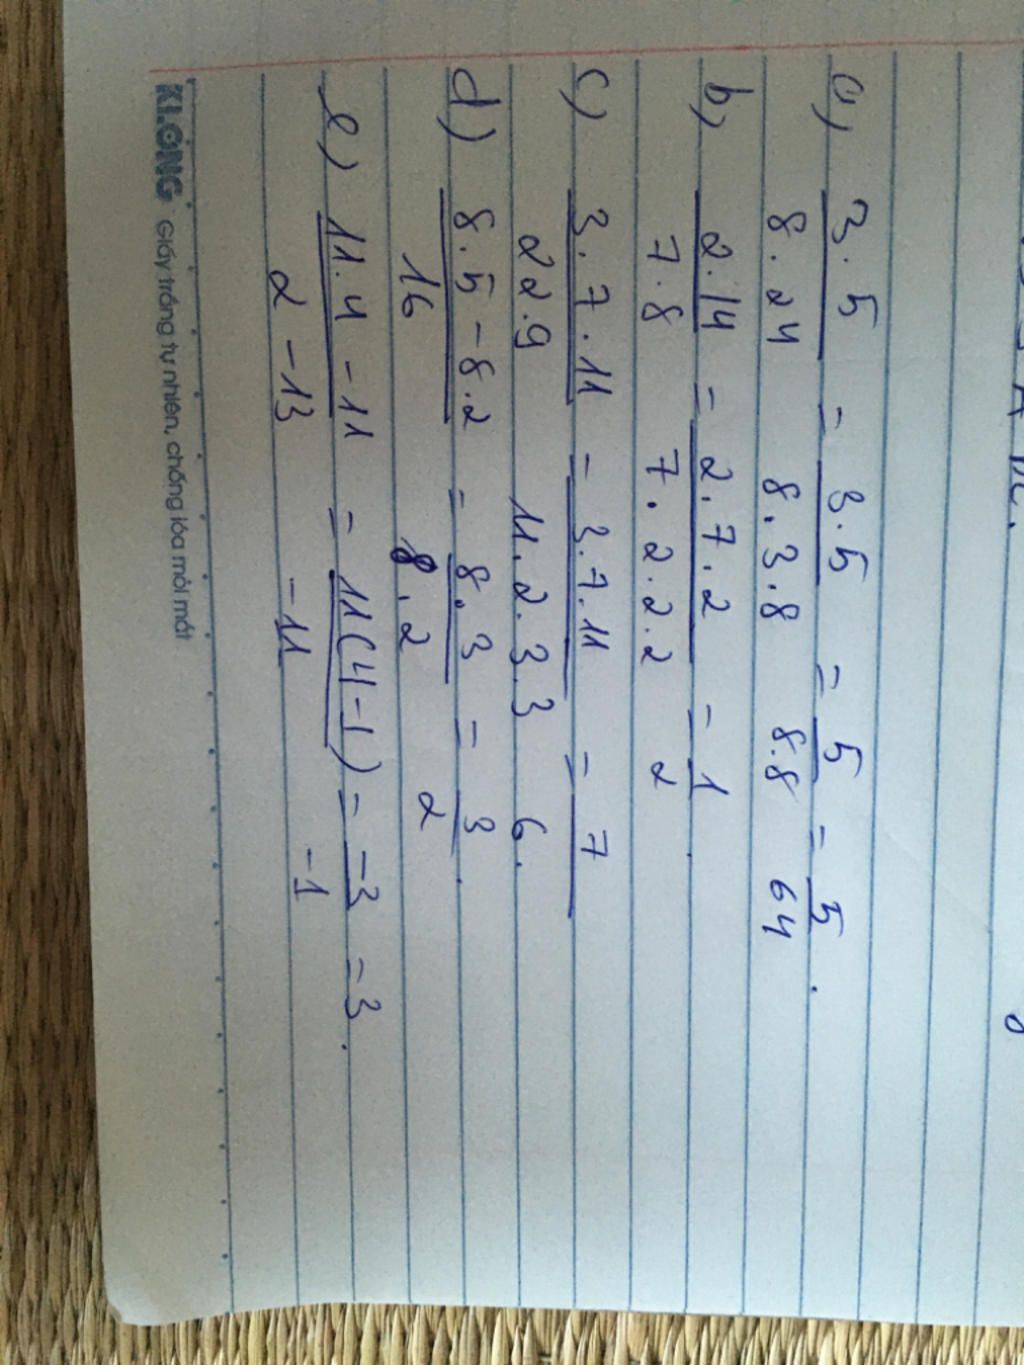 a) 3.5 = 3.5 = 5 = 5 .
8.24 8.3.8 8.8 64
b) 2.14 = 2.7.2 = 1 .
7.8 7.2.2.2 2
c) 3.7.11 = 3.7.11 = 7
22.9 11.2.3.3 6.
d) 8.5-8.2 = 8.3 = 3 .
16 8.2 2
e) 11.4-11 = 11(4-1) = -3 = 3.
2-13 -11 -1
KLONG Giấy trắng tự nhiên, chống lóa mỏi mắt